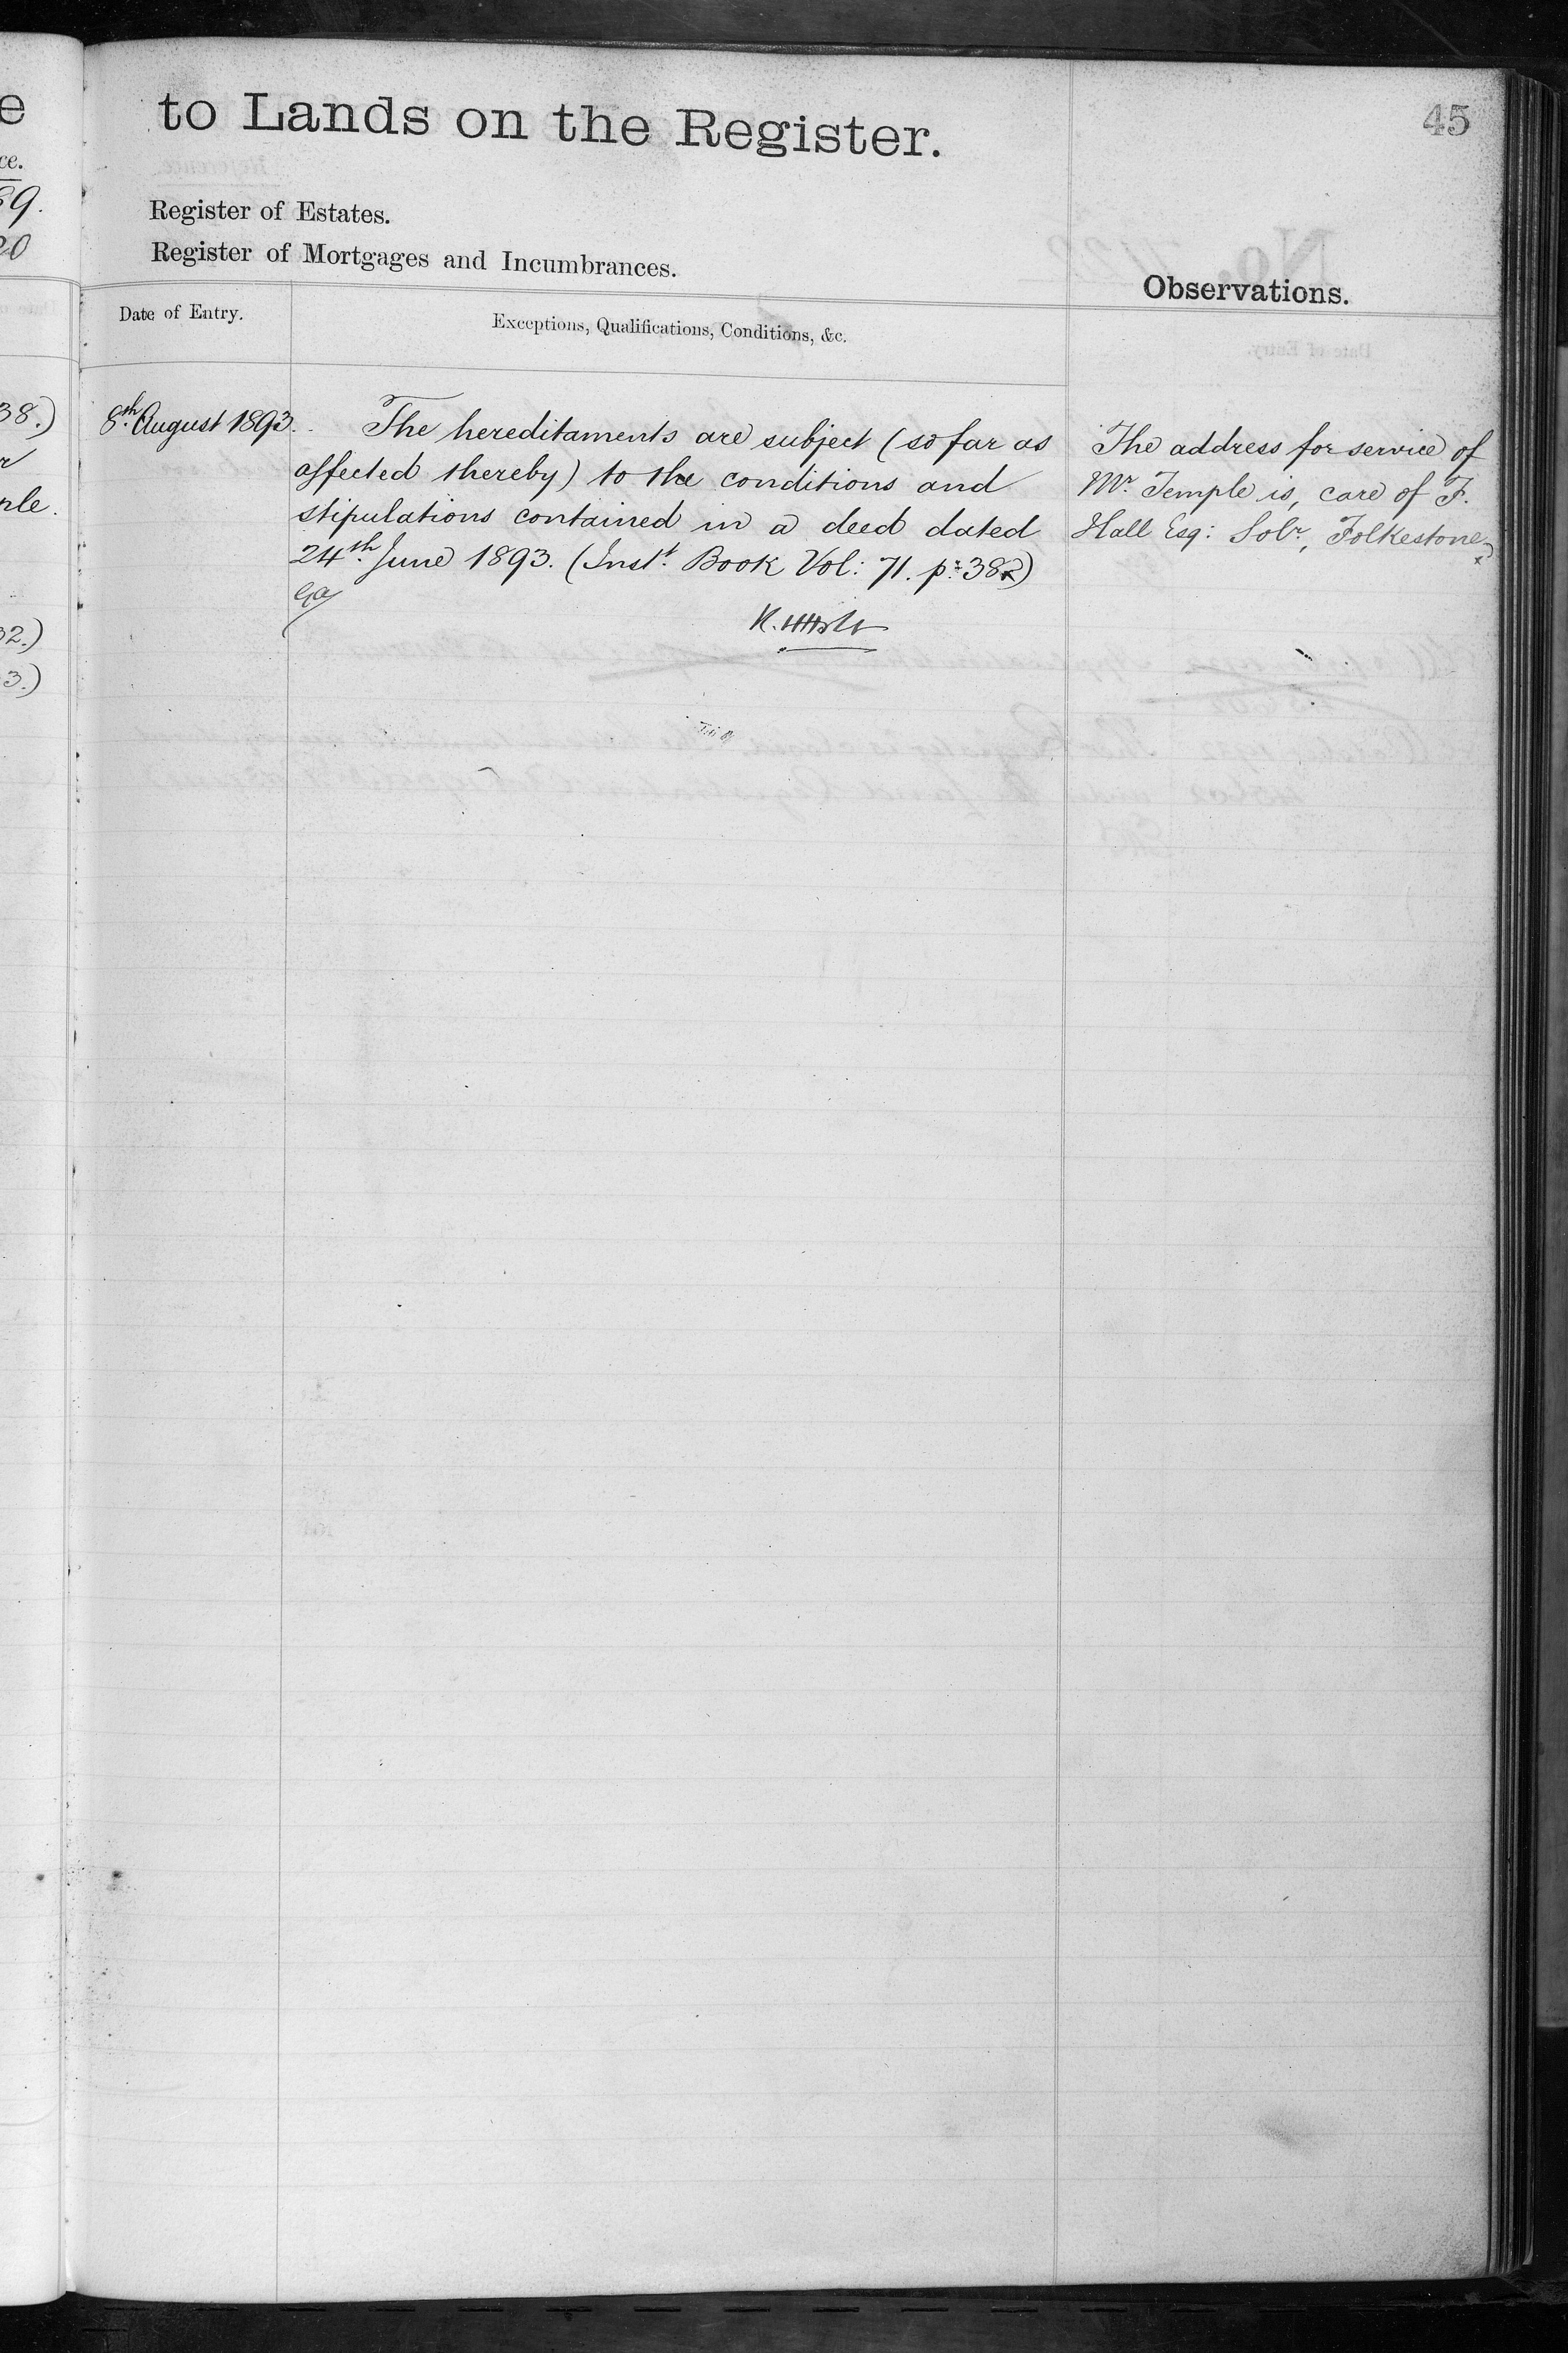 e
ce.
89.
20
38.)
r
ple.
32.)
3.)
to Lands on the Register.
45
Register of Estates.
Register of Mortgages and Incumbrances.
Observations.
Date of Entry.
Exceptions, Qualifications, Conditions, &c.
8th August 1893.
The hereditaments are subject (so far as
affected thereby) to the conditions and
stipulations contained in a deed dated
24th June 1893. (Instt. Book Vol: 71. p: 382)
The address for service of
Mr. Temple is, care of F.
Hall Esq: Solr., Folkestone